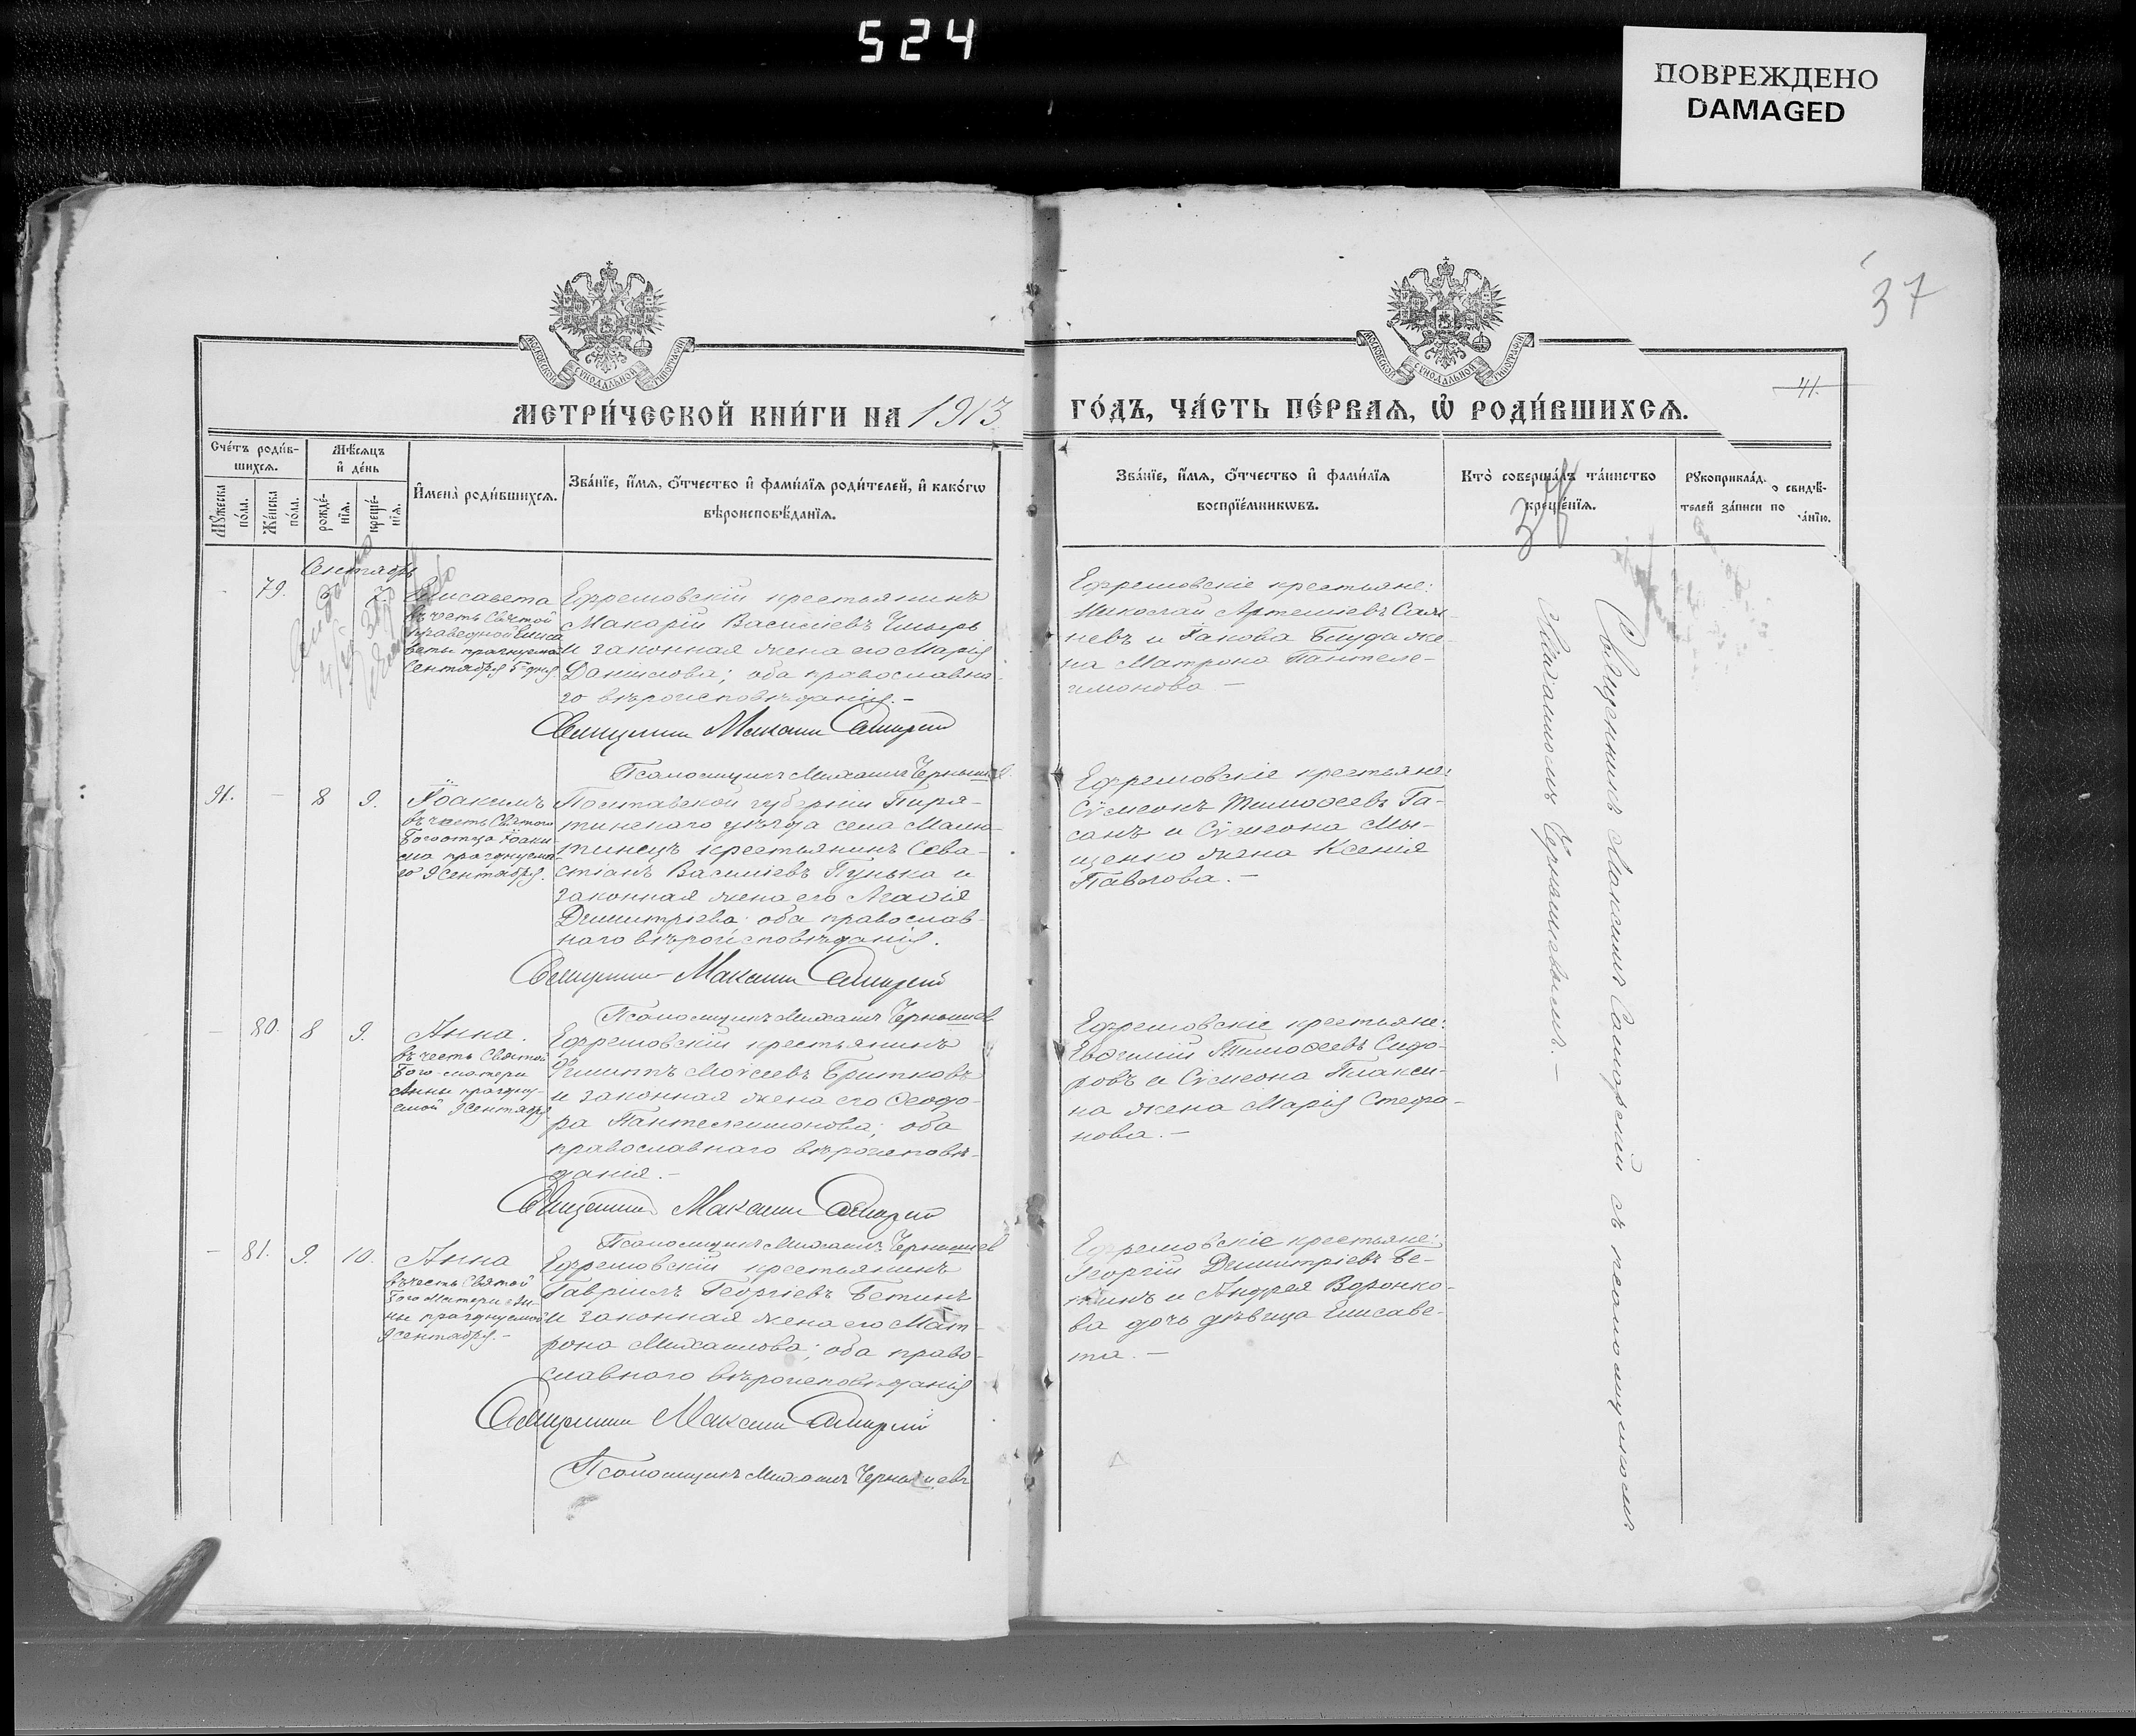 524
ПОВРЕЖДЕНО
DAMAGED
37
МОСКОВСКОЙ СУНОДАЛЬНОЙ ТИПОГРАФІИ
МОСКОВСКОЙ СУНОДАЛЬНОЙ ТИПОГРАФІИ
41.
МЕТРИ́ЧЕСКОЙ КНИ́ГИ НА 1913
ГО́ДЪ, ЧА́СТЬ ПЕ́РВАѦ, Ѡ҆ РОДИ́ВШИХСѦ.
Сче́тъ роди́в-
шихсѧ.
Мѣ́сѧцъ
и҆ де́нь
Мꙋ́жеска
по́ла.
Же́нска
по́ла.
рожде́-
нїѧ.
креще́-
нїѧ.
И҆мена̀ роди́вшихсѧ.
Зва́нїе, и҆́мѧ, ѻ҆́тчество и҆ фами́лїѧ роди́телей, и҆ како́гѡ
вѣроисповѣ́данїѧ.
Зва́нїе, и҆́мѧ, ѻ҆́тчество и҆ фами́лїѧ
воспрїе́мникѡвъ.
Кто̀ соверша́лъ та́инство
креще́нїѧ.
Рꙋкоприкла́д. о свидѣ́-
телей за́писи по ча́нїю.
37
Сентябрь
79. 6 7. Елисавета
въ честь Святой
праведной Елиса
веты празднуемой
Сентября 5 дня.
Ефремовскій крестьянинъ
Макарій Василіевъ Чмырь
и законная жена его Марія
Данилова; оба православна-
го вѣроисповѣданія.-
Священникъ Максимъ Самарскій
Псаломщикъ Михаилъ Чернышев
Ефремовскіе крестьяне:
Николай Артеміевъ
и Іакова Блуда же-
на Матрона Пантеле-
имонова -
91. - 8 9. Іоакимъ
въ честь Святого
Богоотца Іоаки-
ма празднуемо-
го 9 Сентября.
Полтавской губерніи Пиря-
тинскаго уѣзда села Малю-
тинецъ крестьянинъ Сева-
стіанъ Василіевъ Пунька и
законная жена его Агафія
Димитріева оба православ-
наго вѣроисповѣданія.
Священникъ Максимъ Самарскій
Псаломщикъ Михаилъ Чернышев
Ефремовскіе крестьяне:
Сѵмеонъ Тимоѳеевъ Га-
санъ и Сѵмеона Мы-
щенко жена Ксенія
Павлова.-
- 80. 8 9. Анна.
въ честь Святой
Бого-матери
Анны праздну-
емой 9 Сентября
Ефремовскій крестьянинъ
Филиппъ Моѵсеевъ Бритковъ
и законная жена его Ѳеодо-
ра Пантелеимонова; оба
православнаго вѣроисповѣ-
данія.-
Священникъ Максимъ Самарскій
Псаломщикъ Михаилъ Чернышев
Ефремовскіе крестьяне:
Евѳимій Тимоѳеевъ Сидо-
ровъ и Сѵмеона Плакси-
на жена Марія Стефа-
нова.-
- 81. 9. 10. Анна
въ честь Святой
Бого Матери Ан-
ны празднуемой
9 Сентября.-
Ефремовскій крестьянинъ
Гавріилъ Георгіевъ Бетинъ
и законная жена его Мат-
рона Михаилова; оба право-
славнаго вѣроисповѣданія
Священникъ Максимъ Самарскій
Псаломщикъ Михаилъ Чернышевъ
Ефремовскіе крестьяне:
Георгій Димитріевъ Бе-
тинъ и Андрея Воронко-
ва дочь дѣвица Елисаве-
та.-
Священникъ Максимъ Самарскій съ псаломщикомъ
Михаиломъ Чернышевымъ.-